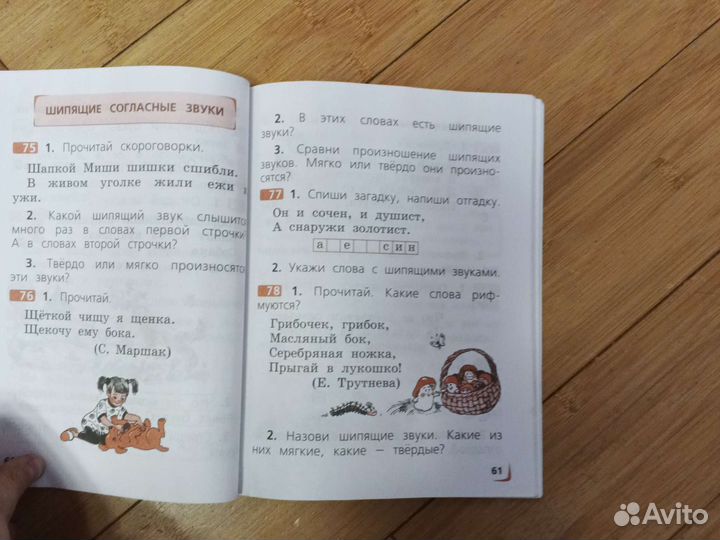 ШИПЯЩИЕ СОГЛАСНЫЕ ЗВУКИ
75 1. Прочитай скороговорки.
Шапкой Миши шишки сшибли.
В живом уголке жили ежи и
ужи.
2. Какой шипящий звук слышится
много раз в словах первой строчки?
А в словах второй строчки?
3. Твёрдо или мягко произносятся
эти звуки?
76 1. Прочитай.
Щёткой чищу я щенка.
Щекочу ему бока.
(С. Маршак)
2. В этих словах есть шипящие
звуки?
3. Сравни произношение шипящих
звуков. Мягко или твёрдо они произно-
сятся?
77 1. Спиши загадку, напиши отгадку.
Он и сочен, и душист,
А снаружи золотист.
а е син
2. Укажи слова с шипящими звуками.
78 1. Прочитай. Какие слова риф-
муются?
Грибочек, грибок,
Масляный бок,
Серебряная ножка,
Прыгай в лукошко!
(Е. Трутнева)
2. Назови шипящие звуки. Какие из
них мягкие, какие – твёрдые?
61
Avito